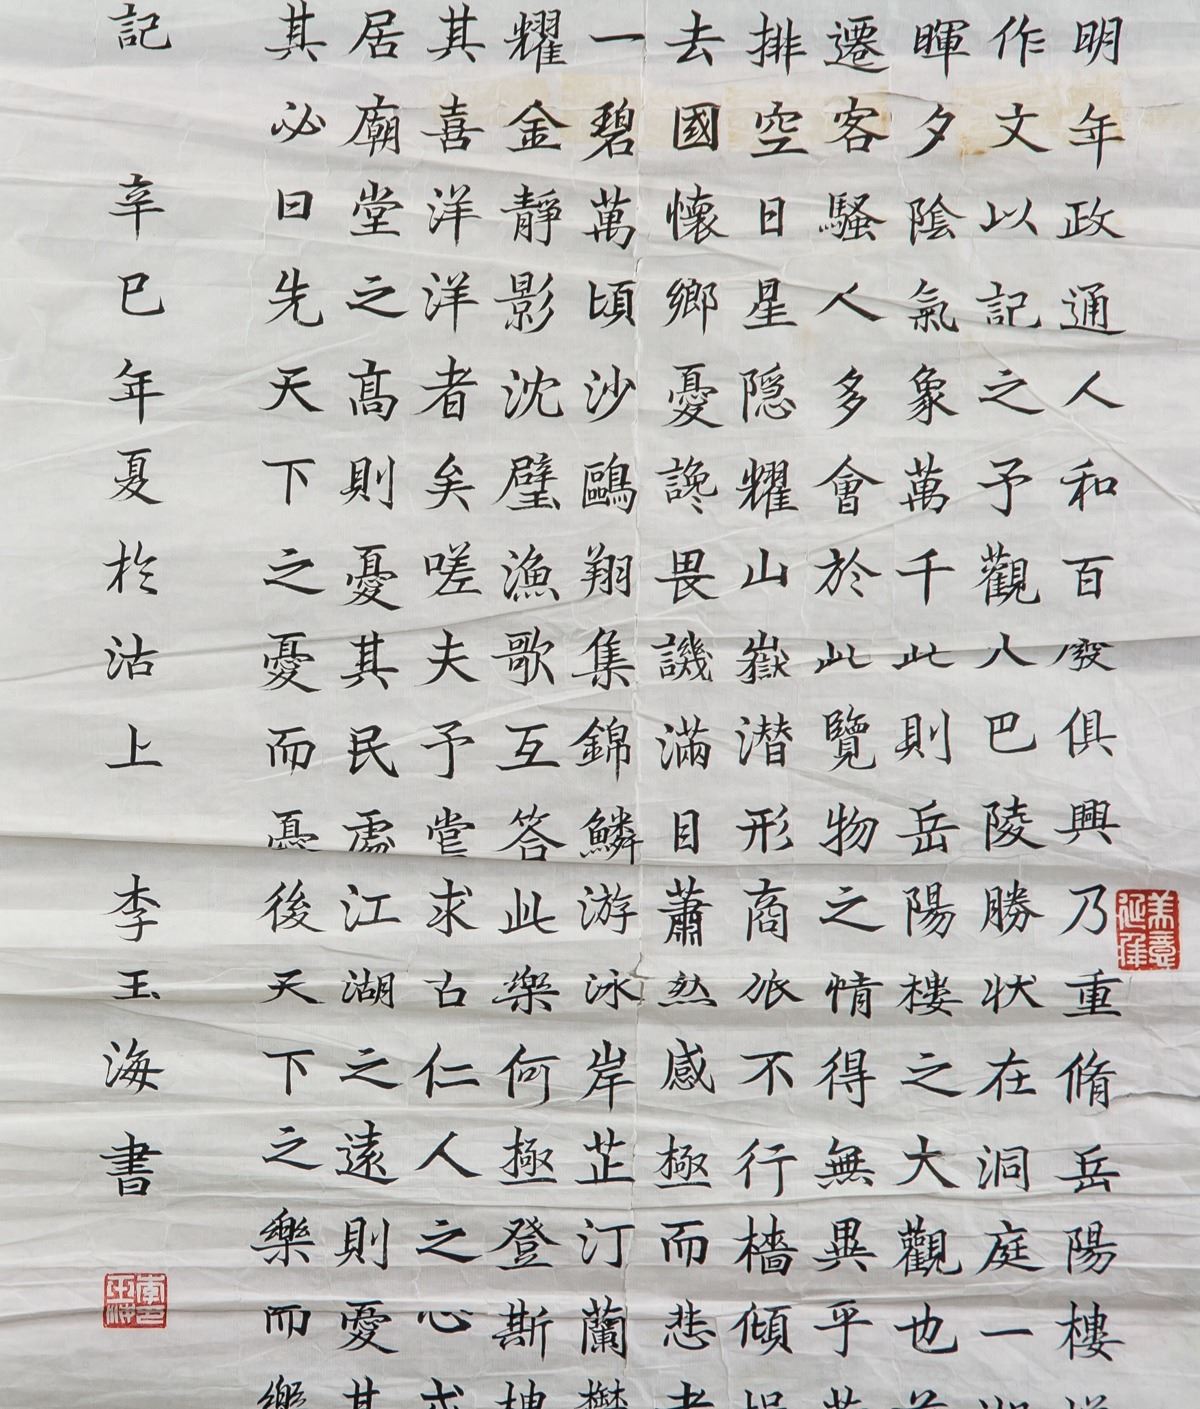 明年政通人和百廢俱興乃重脩岳陽樓
作文以記之予觀夫巴陵勝狀在洞庭一
暉夕陰氣象萬千此則岳陽樓之大觀也
遷客騷人多會於此覽物之情得無異乎
排空日星隱耀山嶽潛形商旅不行檣傾
去國懷鄉憂讒畏譏滿目蕭然感極而悲
一碧萬頃沙鷗翔集錦鱗游泳岸芷汀蘭
耀金靜影沈璧漁歌互答此樂何極登斯
其喜洋洋者矣嗟夫予嘗求古仁人之心
居廟堂之高則憂其民處江湖之遠則憂
其必曰先天下之憂而憂後天下之樂而
記 辛巳年夏於沽上 李玉海書